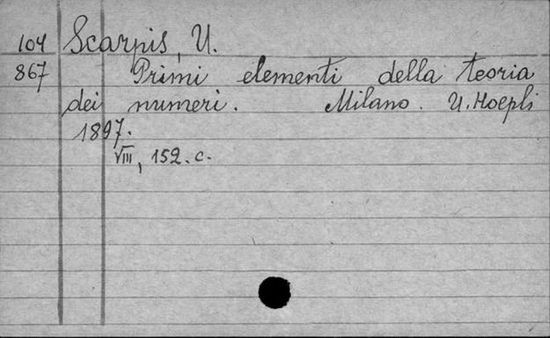 104 Scarpis, U.
867 Primi elementi della teoria
dei numeri. Milano. U. Hoepli
1897.
VIII, 152. c.